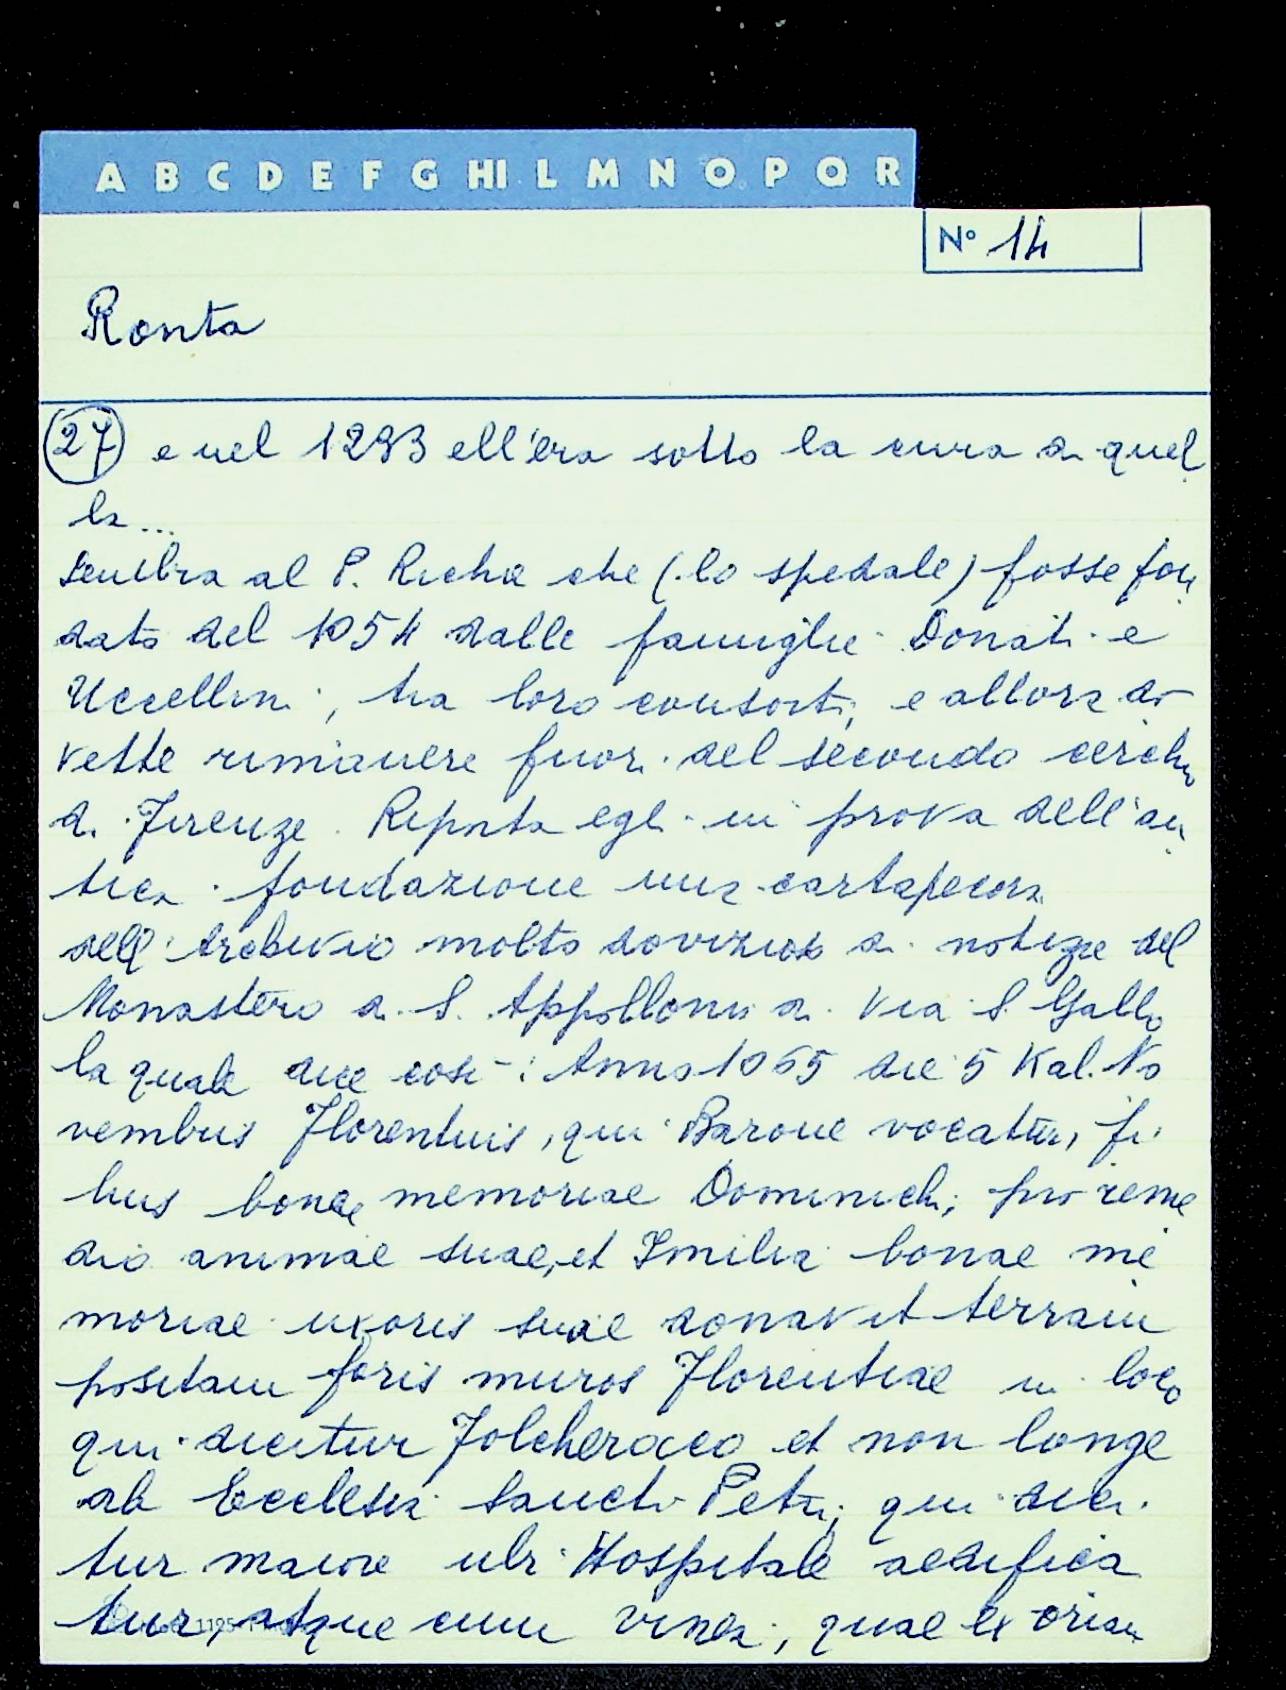 A B C D E F G HI L M N O P Q R
Nº 14
Ronta
27 e nel 1293 ell'era sotto la cura di quel
la...
sembra al P. Richa che (lo spedale) fosse fon
dato del 1054 dalle famiglie Donati e
Uccellini, tra loro consorti, e allora do
vette rimanere fuori del secondo cerchio
di Firenze. Riporta egli in prova dell'an
tica fondazione una cartapecora
dell'Archivio molto dovizioso di notizie del
Monastero di S. Appollonia di Via S. Gallo
la quale dice così: Anno 1065 die 5 Kal. No
vembris Florentius, qui Barone vocatur, fi
lius bonae memoriae Dominichi, pro reme
dio animae suae, et Imilia bonae me
moriae uxoris suae donavit terram
positam foris muros Florentiae in loco
qui dicitur Folcheraco et non longe
ab Ecclesia Sancti Petri, qui dici
tur maiore ubi Hospitale aedifica
tur, atque cum vinea, quae ex orian